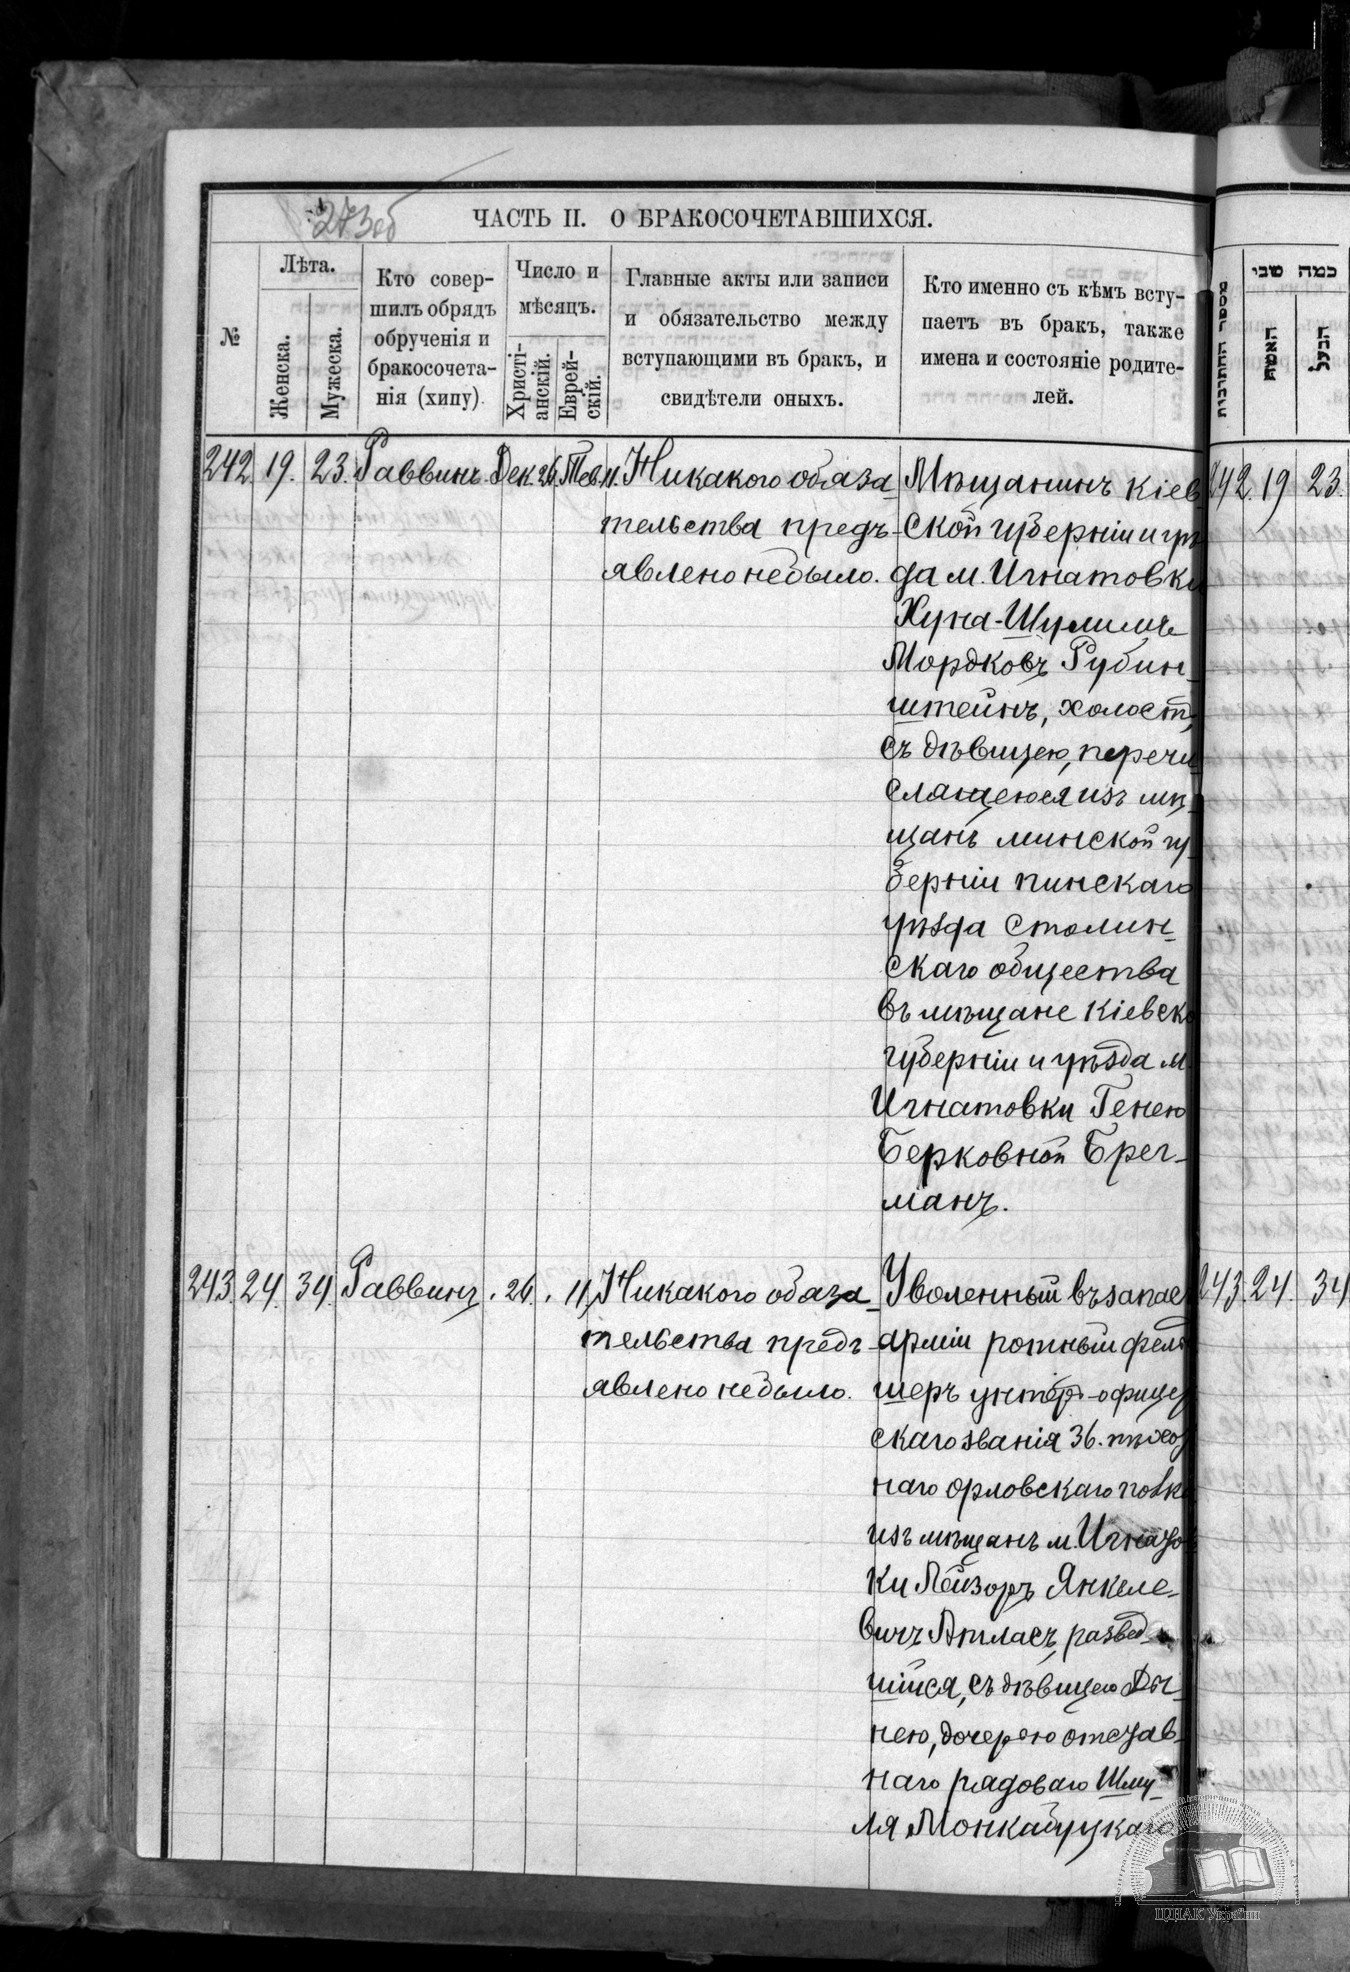 273об
ЧАСТЬ II. О БРАКОСОЧЕТАВШИХСЯ.
№
Лѣта.
Женска.
Мужеска.
Кто совер-
шилъ обрядъ
обрученія и
бракосочета-
нія (хипу)
Число и
мѣсяцъ.
Христі-
анскій.
Еврей-
скій.
Главные акты или записи
и обязательство между
вступающими въ бракъ, и
свидѣтели оныхъ.
Кто именно съ кѣмъ всту-
паетъ въ бракъ, также
имена и состояніе родите-
лей.
242 19. 23. Раввинъ. Дек. 26. Тев. 11. Никакого обяза-
тельства предъ-
явлено небыло.
Мѣщанинъ Кіев
ской губерніи и уѣз
да м. Игнатовки
Хуна-Шулимъ
Мордковъ Рубин-
штейнъ, холостъ,
съ дѣвицею, перечи
слящеюся изъ мѣ-
щанъ минской гу-
берніи пинскаго
уѣзда столин-
скаго общества
въ мѣщане Кіевско
губерніи и уѣзда м.
Игнатовки Генею
Берковной Брег-
манъ.
243. 24. 34. Раввинъ. 26. 11. Никакого обяза-
тельства предъ-
явлено небыло.
Уволенный въ запас
арміи ротный фель
шеръ унтер-офице
скаго званія 36. пѣхо
наго орловскаго полк
изъ мѣщанъ м. Игнато
ки Лейзоръ Янкеле-
вичъ Атласъ, развед-
шійся, съ дѣвицею Ды-
нею, дочерью отстав-
наго рядоваго Шму-
ля Монкабуцкаго
מספר החתונות
כמה שני
האשה
הבעל
242. 19 23.
243. 24. 34
ЦДІАК України